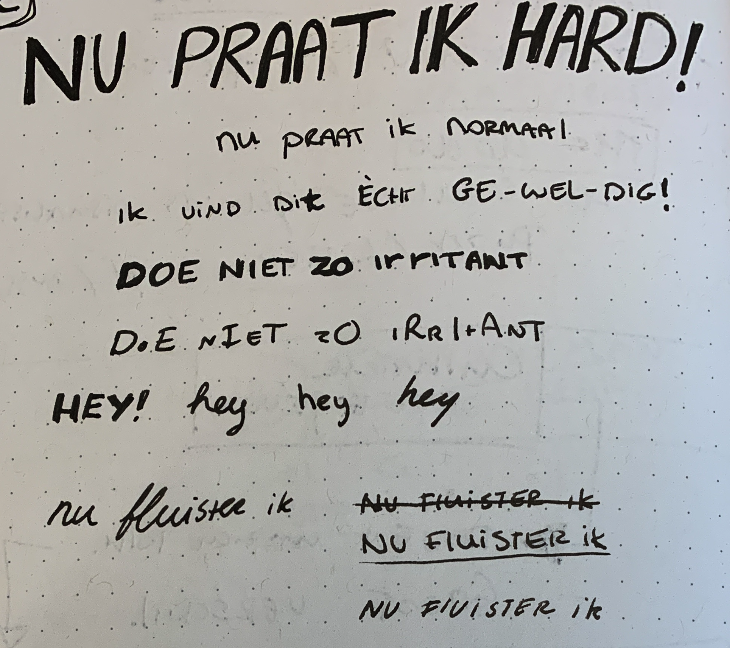 NU PRAAT IK HARD!
nu PRAAT ik NORMAAl
ik VIND Dit ÈCHT GE-WEL-DIG!
DOE NIET ZO IrrITANT
DoE nIET zO iRRItANT
HEY! hey hey hey
nu fluister ik
NU FlUiSTER ik
NU FlUiSTER ik
NU FlUiSTER ik